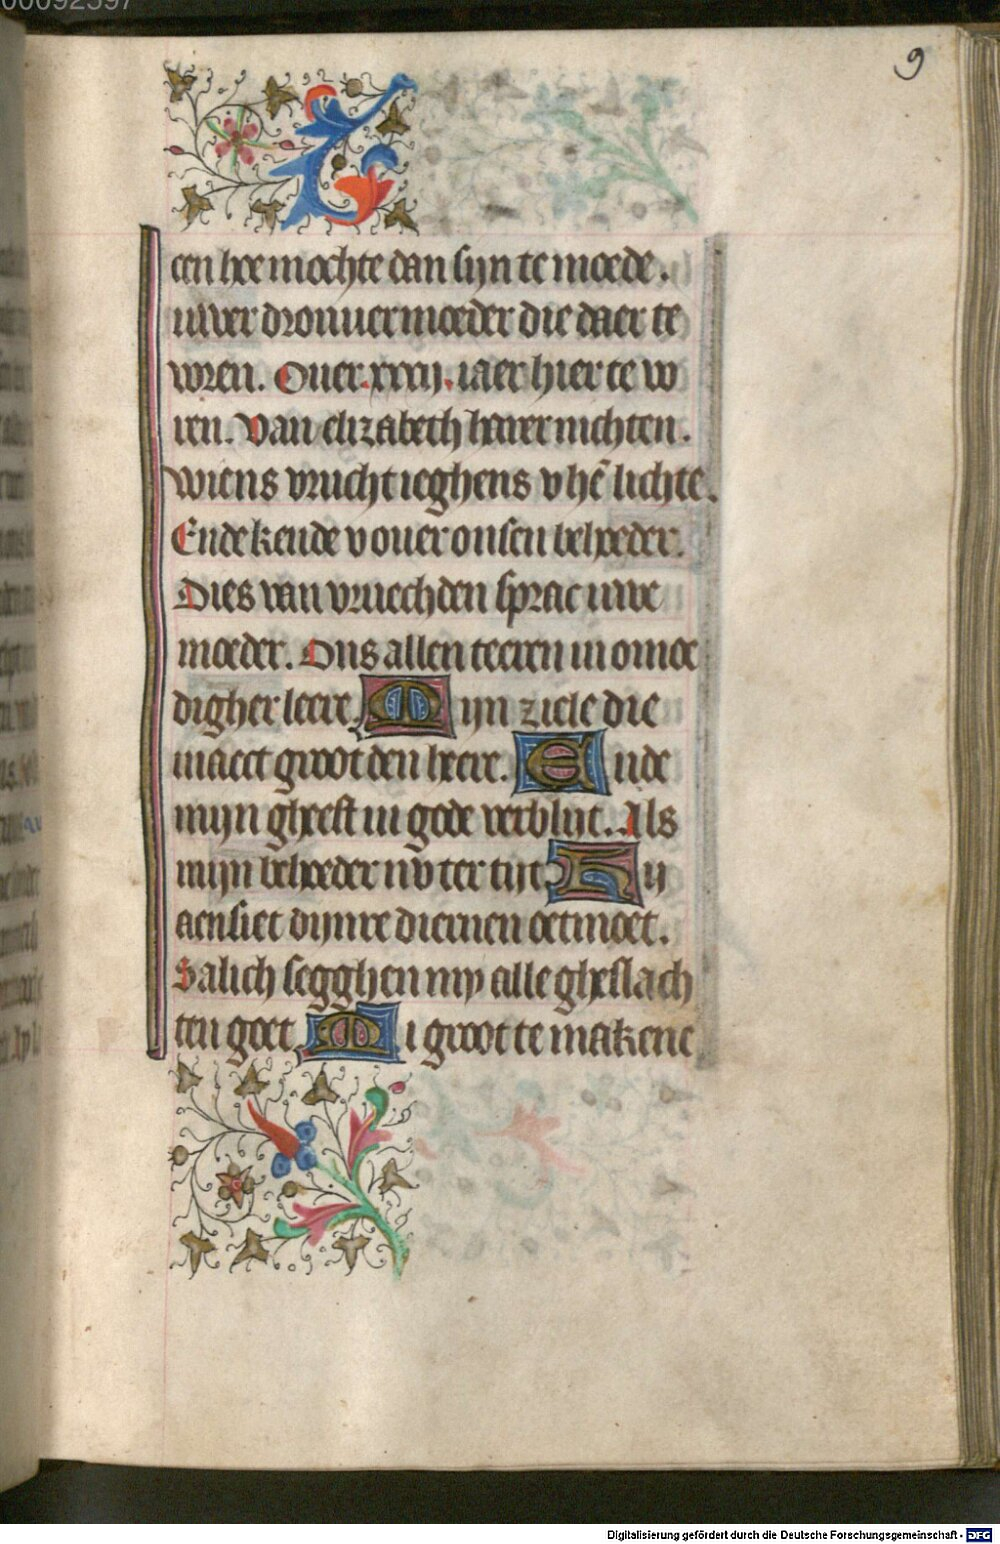 00092597
9
cen hoe mochte dan sijn te moede.
uwer drouuer moeder die daer te
vvren. Ouer .xxxij. iaer hier te vv
ren. Van elizabeth harer nichten.
Wiens vrucht ieghens v hē lichte.
Ende kende v ouer onsen behoeder.
Dies van vruechden sprac uwe
moeder. Ons allen teeren in omoe
digher leere. Mijn ziele die
maect groot den heere. Ende
mijn gheest in gode verblijt. Als
mijn behoeder nv ter tijt. Hij
aensiet dijnre diernen oetmoet.
Salich segghen my alle gheslach
ten goet. Mi groot te makene
Digitalisierung gefördert durch die Deutsche Forschungsgemeinschaft - DFG